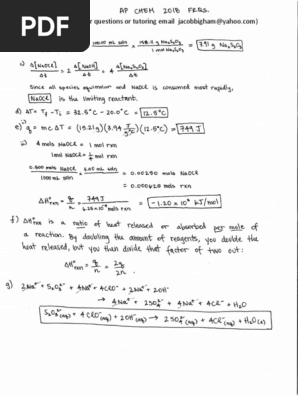 PDF
AP CHEM 2018 FRQs.
r questions or tutoring email jacobbigham@yahoo.com)
100.00 mL soln
158.1 g Na₂S₂O₃
1 mol Na₂S₂O₃
= 7.91 g Na₂S₂O₃
Since all species equimolar and NaOCl is consumed most rapidly,
NaOCl is the limiting reactant.
d) ΔT = T_f - T_i = 32.5°C - 20.0°C = 12.5°C
e) i) q = mcΔT = (15.21g)(3.94 J/g°C)(12.5°C) = 749 J
ii) 4 mols NaOCl = 1 mol rxn
1 mol NaOCl = 1/4 mol rxn
0.500 mols NaOCl / 1000 mL soln × 5.00 mL soln = 0.00250 mols NaOCl
= 0.000625 mols rxn
ΔH°rxn = q/n = 749 J / 6.25×10⁻⁴ mols rxn = -1.20 × 10³ kJ/mol
f) ΔH°rxn is a ratio of heat released or absorbed per mole of
a reaction. By doubling the amount of reagents, you double the
heat released, but you then divide that factor of two out:
ΔH°rxn = q/n = 2q/2n
g)
→ 4Na⁺ + 2SO₄²⁻ + 4Na⁺ + 4Cl⁻ + H₂O
S₂O₃²⁻(aq) + 4ClO⁻(aq) + 2OH⁻(aq) → 2SO₄²⁻(aq) + 4Cl⁻(aq) + H₂O(l)